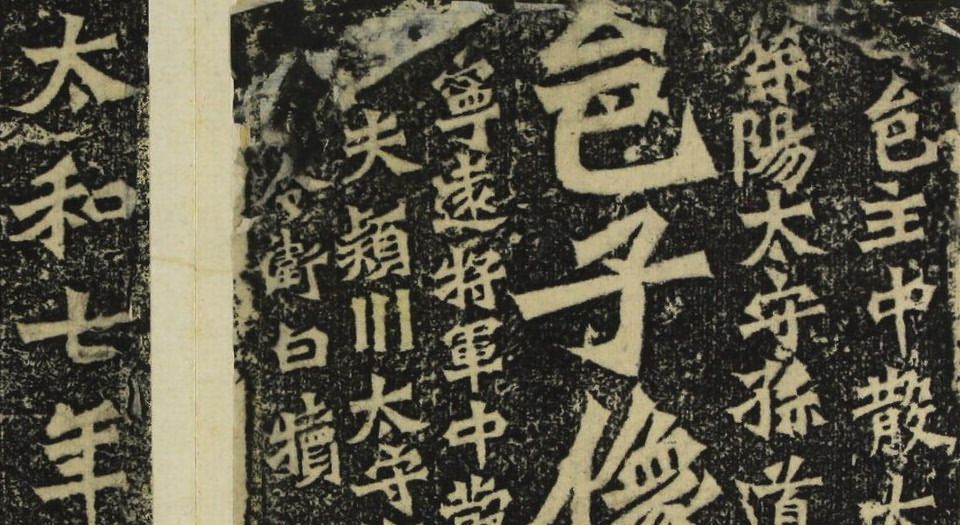 邑主中散大
滎陽太守孫道
邑子像
寧遠將軍中堂
夫潁川太守
衛白犢
太和七年